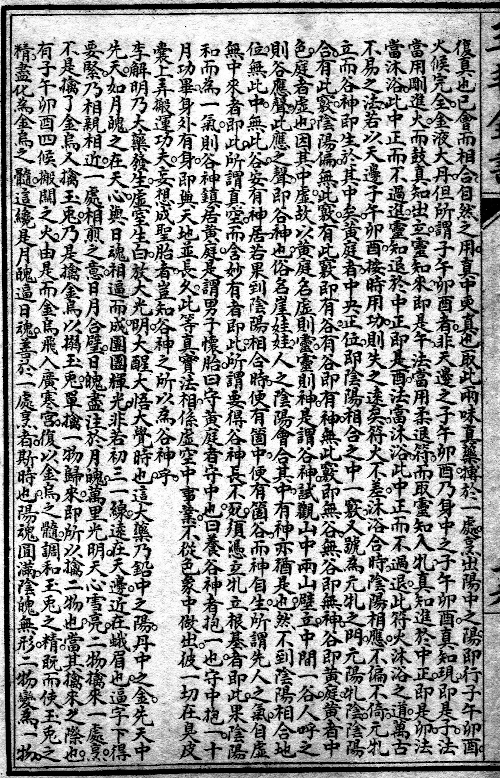 復真也已會而相合自然之用真中更真也取此兩味真藥摶於一處烹出陽中之陽即行子午卯酉
火候完全金液大丹但所謂子午卯酉者非天邊之子午卯酉乃身中之子午卯酉真知現即是子法
當用剛進火而鼓真知出立靈知來即是午法當用柔退符而取靈知入牝真知進於中正即是卯法
當沐浴此中正而不過進靈知退於中正即是酉法當沐浴此中正而不過退此符火沐浴之道萬古
不易之法若以天邊子午卯酉按時用功則失之遠矣符火不差沐浴合時陰陽相應不偏不倚元牝
立而谷神即生於其中矣黃庭者中央正位即陰陽相合之中一竅又號為元牝之門元陽牝陰陰陽
合有此竅陰陽偏無此竅有此竅即有谷有谷即有神無此竅即無谷無谷即無神谷即黃庭黃者中
色庭者虛也因其中虛故以黃庭名虛則靈靈則神是謂谷神試觀山中兩山壁立中間一谷人呼之
則谷應聲此應之聲即谷神也俗名崖娃娃人之陰陽會合其中有神亦猶是也然不到陰陽相合地
位無此中無此谷安有神居若果到陰陽相合時便有箇中便有箇谷而神自生所謂先人之氣自虛
無中來者即此所謂真空而含妙有者即此所謂要得谷神長不死須憑立牝立根基者即此果陰陽
和而為一氣則谷神鎮居黃庭是謂男子懷胎曰守黃庭者守中也曰養谷神者抱一也守中抱一十
月功畢身外有身即與天地並長久此等真實法相係虛空中事業不從色象中做出彼一切在臭皮
囊上弄搬運功夫妄想成聖胎者豈知谷神之所以為谷神乎
李解明乃大藥發生虛室生白放大光明大醒大悟大覺時也這大藥乃鉛中之陽丹中之金先天中
先天如月魄之在天心與日魂相逼而成團圞輝光非若初三一線遠在天邊近在蛾眉也這字下得
要緊乃相親相近一處相煎之意日月合璧日魄盡注於月魄萬里光明天心雪亮二物擒來一處烹
不是擒了金烏又擒玉兔乃是擒金烏以搦玉兔單擒一物歸來即所以擒二物也當其擒來之際也
有子午卯酉四候搬鬭之火由是而金烏飛入廣寒宮復以金烏之髓調和玉兔之精既而使玉兔之
精盡化為金烏之髓這纔是月魄逼日魂善於一處烹者斯時也陽魂圓滿陰魄無形二物變為一物